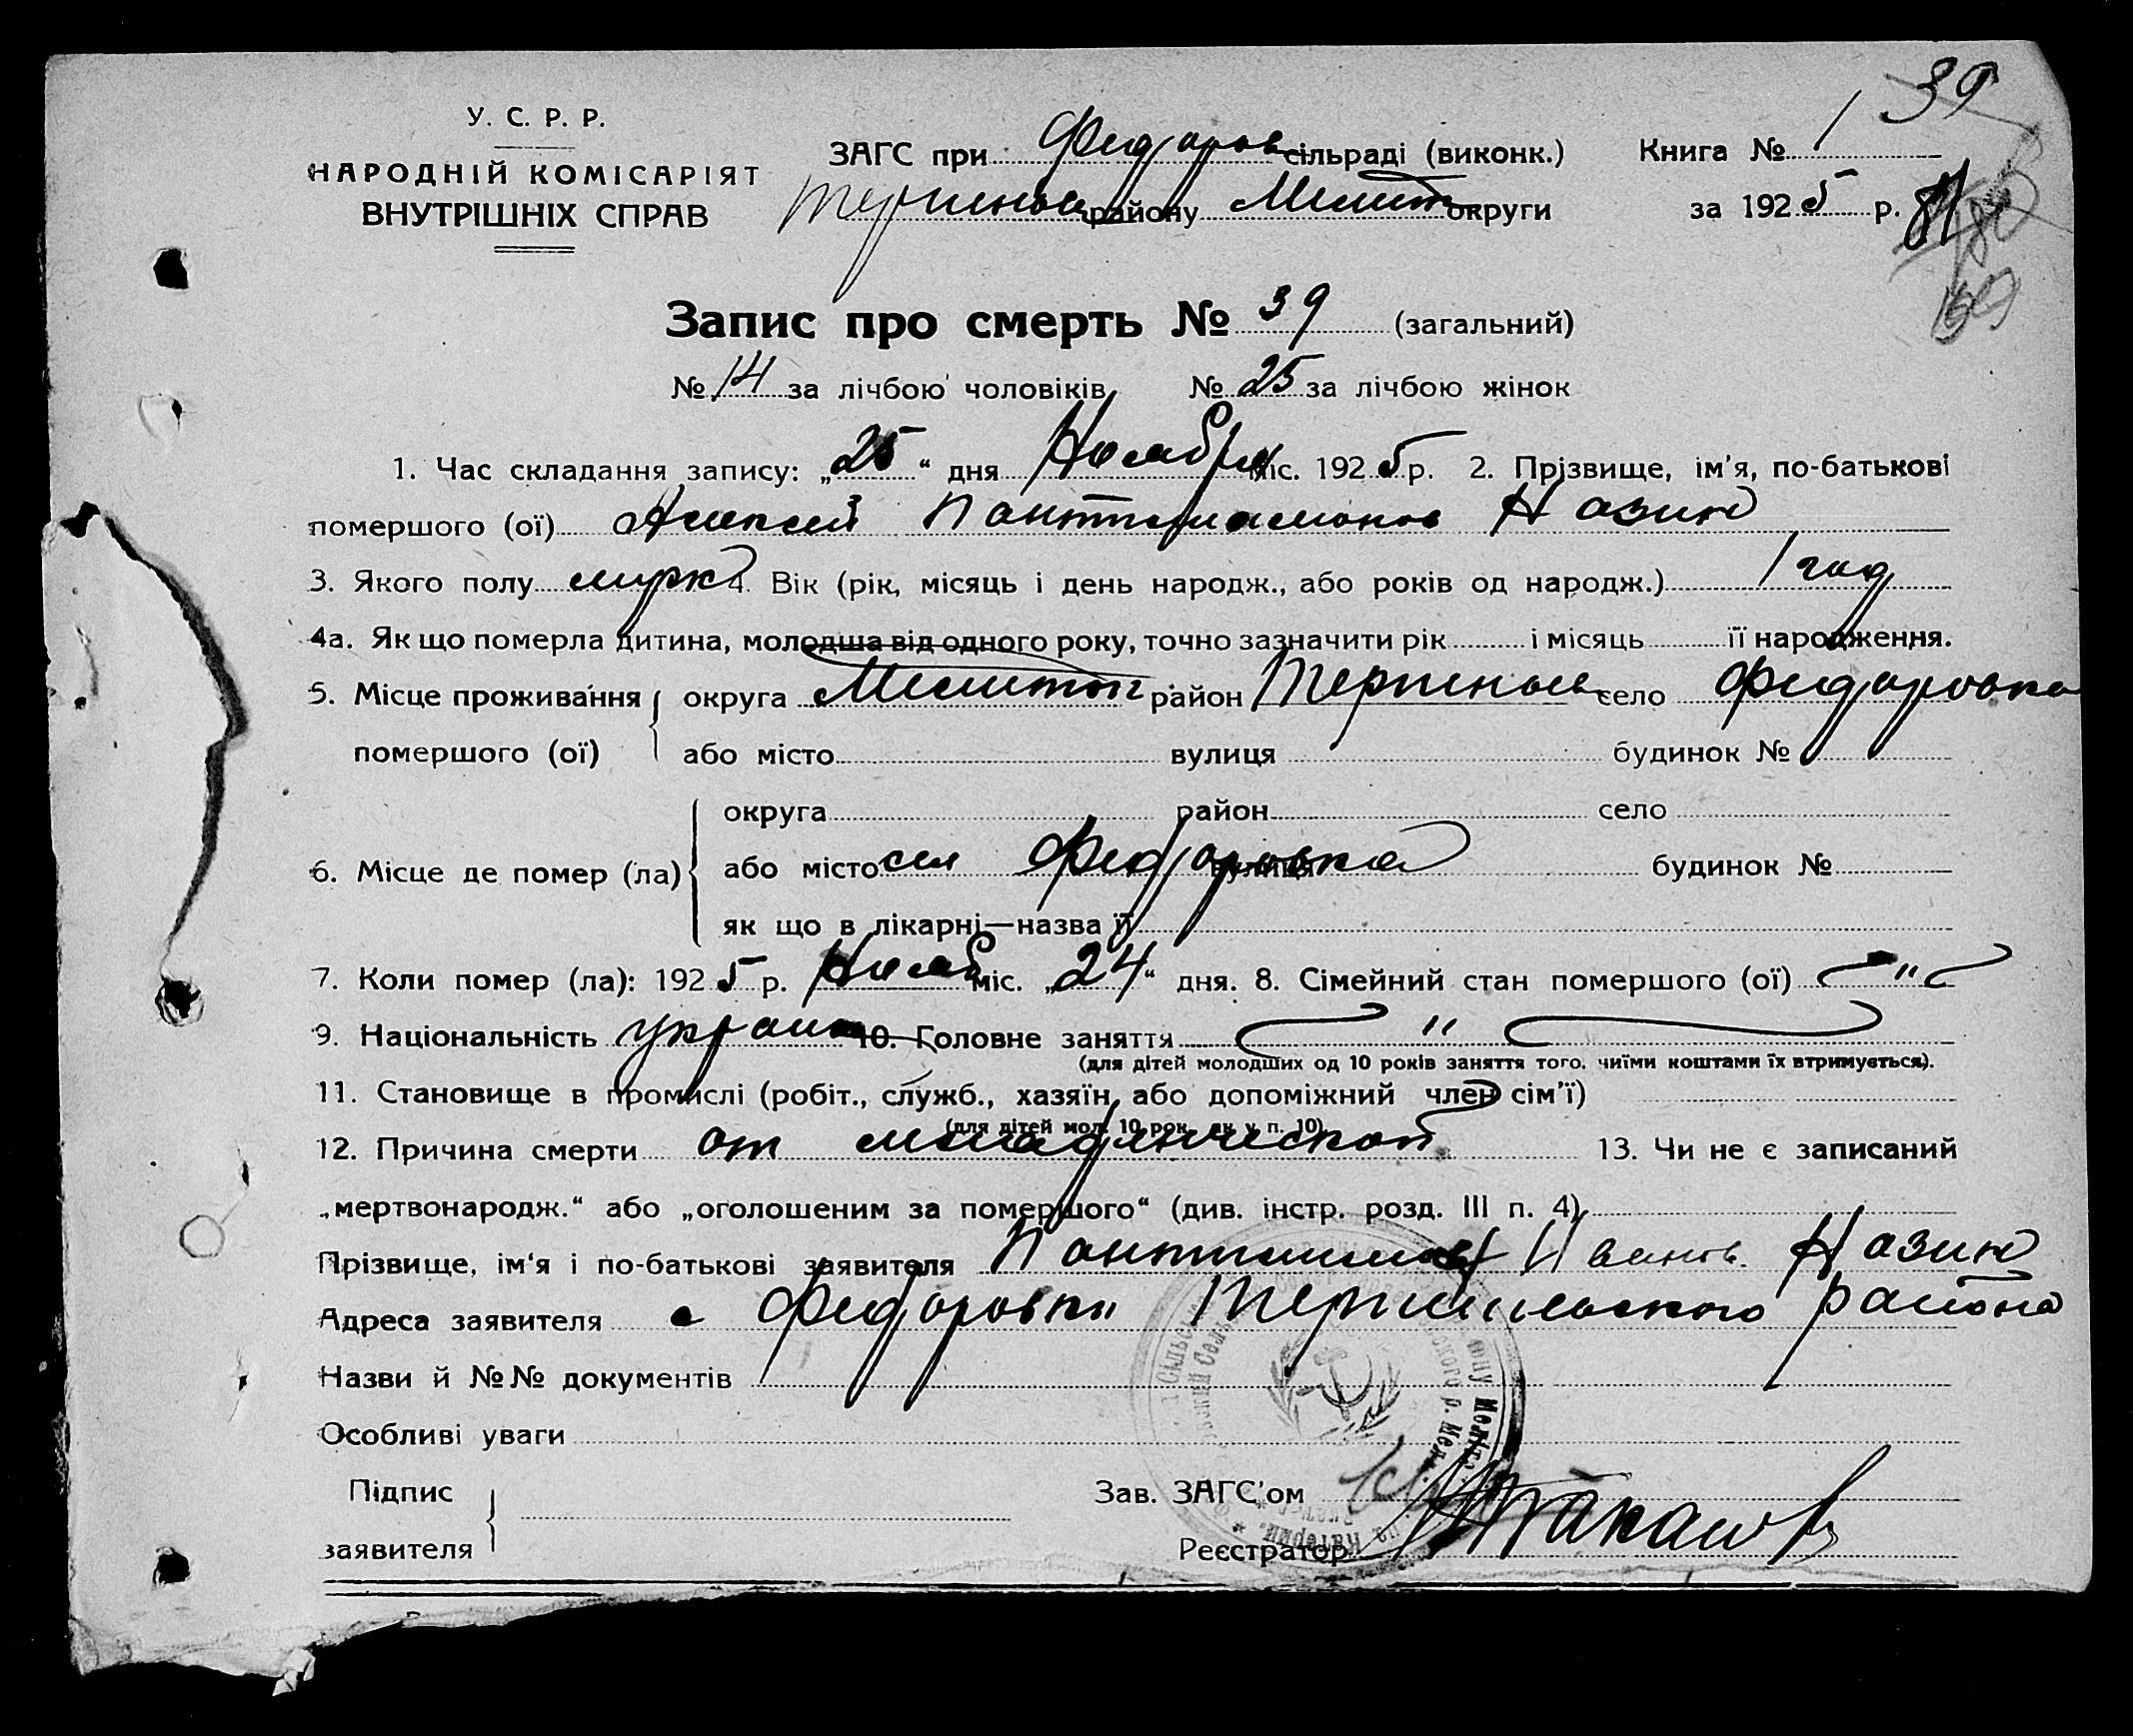 39
У. С. Р. Р.
НАРОДНІЙ КОМІСАРІЯТ
ВНУТРІШНІХ СПРАВ
ЗАГС при Федоров сільраді (виконк.)
Терпеньев району Мелит округи
Книга № 1
за 1925 р.
81
Запис про смерть № 39 (загальний)
№ 14 за лічбою чоловіків № 25 за лічбою жінок
1. Час складання запису: „25“ дня Ноября міс. 1925 р. 2. Прізвище, ім'я, по-батькові
помершого (ої) Алексей Пантелимонов Назин
3. Якого полу мужс 4. Вік (рік, місяць і день народж., або років од народж.) 1 год
4а. Як що померла дитина, молодша від одного року, точно зазначити рік і місяць її народження.
5. Місце проживання помершого (ої) округа Мелитоп район Терпеньев село Федоровка
або місто вулиця будинок №
6. Місце де помер (ла) округа район село
або місто сел Федоровка вулиця будинок №
як що в лікарні—назва її
7. Коли помер (ла): 1925 р. Нояб міс. „24“ дня. 8. Сімейний стан помершого (ої) — " —
9. Національність украин 10. Головне заняття — " —
(для дітей молодших од 10 років заняття того, чиїми коштами їх втримується).
11. Становище в промислі (робіт., служб., хазяїн, або допоміжний член сім'ї)
(для дітей мол. 10 рок. як у п. 10)
12. Причина смерти от младенческой 13. Чи не є записаний
„мертвонародж.“ або „оголошеним за помершого“ (див. інстр. розд. III п. 4)
Прізвище, ім'я і по-батькові заявителя Пантелимон Иванов. Назин
Адреса заявителя с Федоровки Терпеньевского района
Назви й №№ документів
Особливі уваги
Підпис заявителя
Зав. ЗАГС'ом
Реєстратор